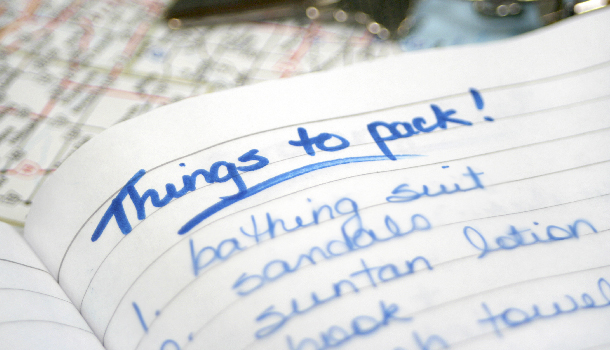 Things to pack!
1. bathing suit
sandals
suntan lotion
book
towel